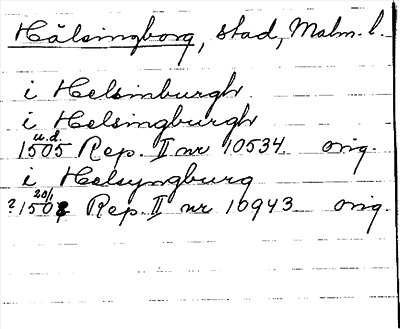 Hälsingborg, stad, Malm. l.
i Helsinburgh
i Helsingburgh
u.d.
1505 Rep. II nr 10534 orig.
i Helsyngburg
20/1
? 1508 Rep. II nr 10943 orig.